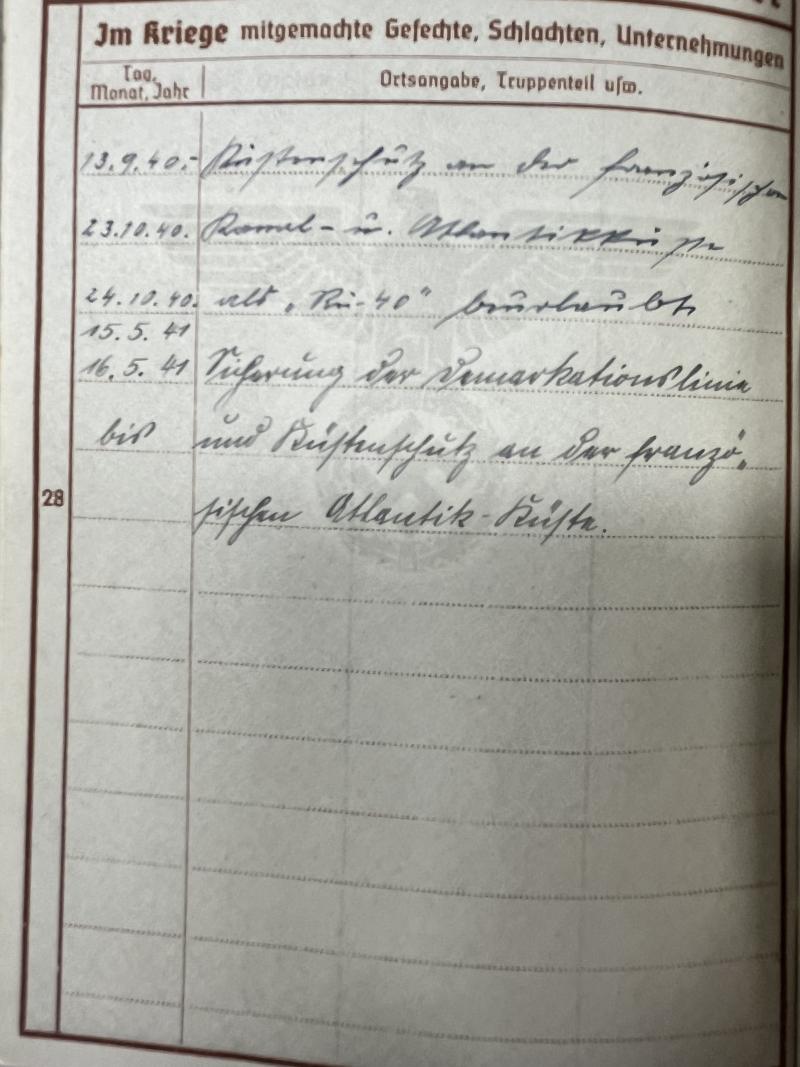 Im Kriege mitgemachte Gefechte, Schlachten, Unternehmungen
Tag, Monat, Jahr
Ortsangabe, Truppenteil usw.
13.9.40.- Küstenschutz an der französischen
23.10.40. Kanal- u. Atlantikküste
24.10.40. als „Rü-40" beurlaubt
15.5.41
16.5.41 Sicherung der Demarkationslinie
bis und Küstenschutz an der franzö„
sischen Atlantik-Küste.
28